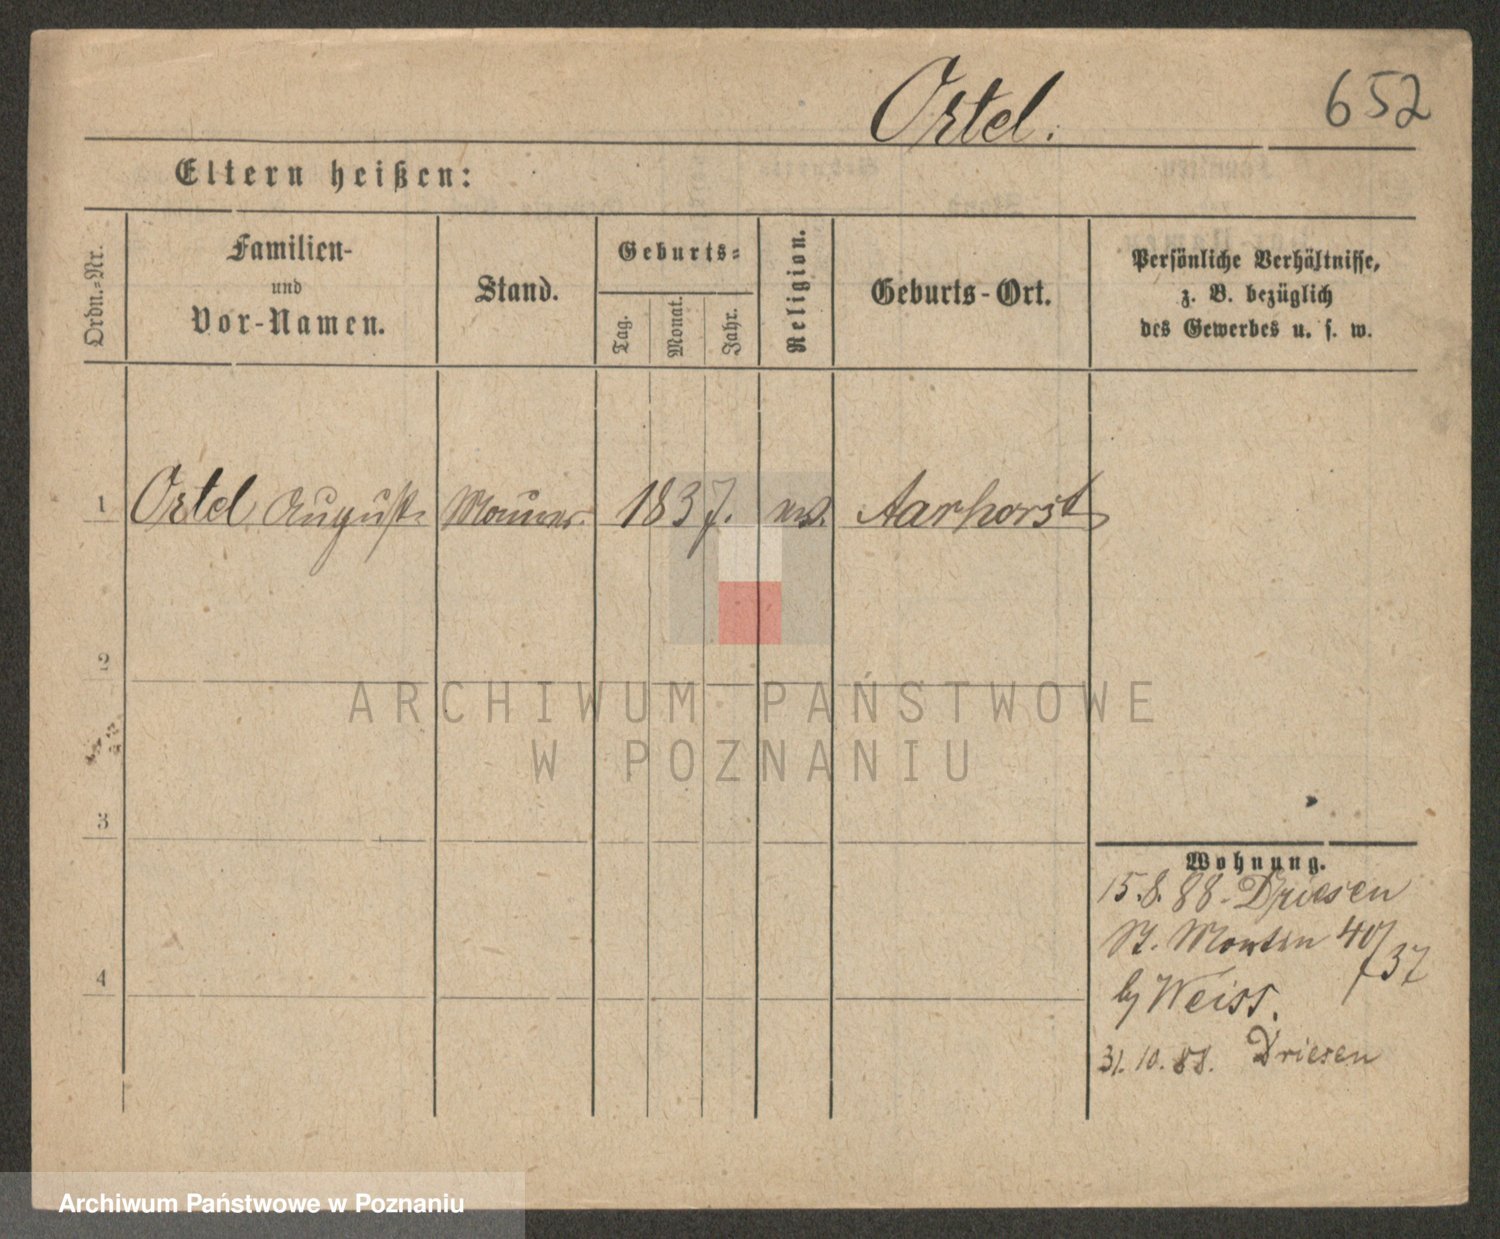 Ortel.
652
Eltern heißen:
Ordn.-Nr.
Familien-
und
Vor-Namen.
Stand.
Geburts-
Tag.
Monat.
Jahr.
Religion.
Geburts-Ort.
Persönliche Verhältnisse,
z. B. bezüglich
des Gewerbes u. s. w.
1 Ortel August Maurer. 1837. ev. Aarhorst
2
3
4
Wohnung.
15.8.88. Driesen
St. Martin 40/37
by Weiss.
31.10.88. Driesen
ARCHIWUM PAŃSTWOWE
W POZNANIU
Archiwum Państwowe w Poznaniu